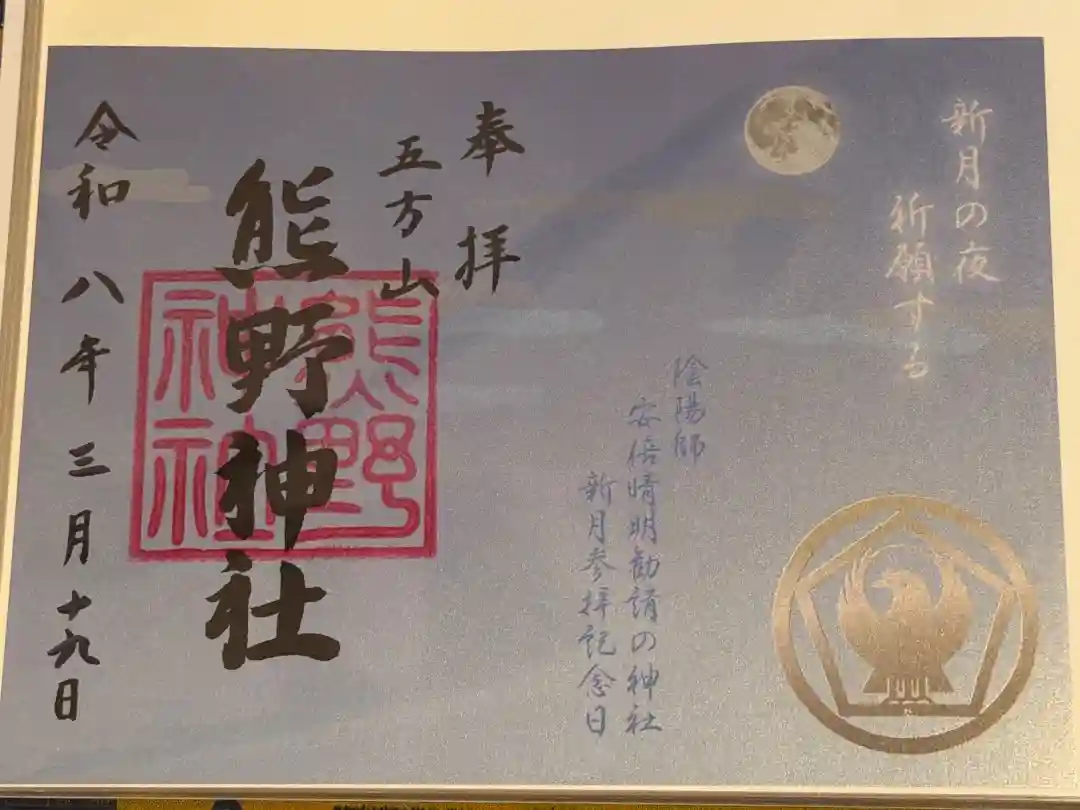 新月の夜
祈願する
陰陽師
安倍晴明勧請の神社
新月参拝記念日
奉拝
五方山
熊野神社
令和八年三月十九日
熊野
神社